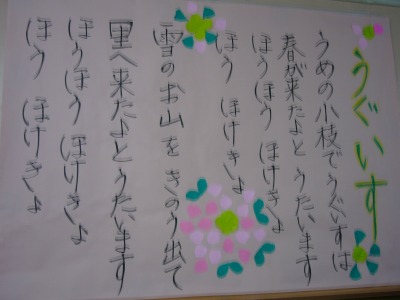 うぐいす
うめの小枝でうぐいすは
春が来たよとうたいます
ほうほう ほけきょ
ほう ほけきょ
雪のお山をきのう出て
里へ来たよとうたいます
ほうほう ほけきょ
ほう ほけきょ